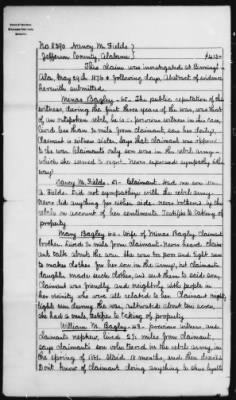 No 8390 Nancy M. Fields
Jefferson County, Alabama
This claim was investigated at Birming-
Ala, May 29th 1876 & following day. Abstract of evidence
herewith submitted.
Minas Bagley - 65 - The public reputation of this
witness, during the first three years of the war, was that
of an outspoken rebel, he is a previous witness in this case,
lived less than ½ mile from claimant, saw her daily,
Claimant is witness' sister, says that claimant was opposed
to the war. Claimant's only son was in the rebel army
which she seemed to regret. Never expressed sympathy either
way.
Nancy M. Fields - 61 - Claimant. Had one son in
Never did anything for either side. Never bothered by the
rebels on account of her sentiments. Testifies to taking of
property
Mary Bagley 60 - Wife of Minas Bagley claimant's
brother. Lived ½ mile from claimant. Never heard claim-
ant talk about the war. She was too poor and tight run
to make clothes for her son in the army, but claimant's
daughter made such clothes, and sent them to said son,
Claimant was friendly and neighborly with people in
her vicinity who were all rebels
she had a mule, testifies to taking of property.
William M. Bagley - previous witness and
claimant's nephew, lived 2½ miles from claimant,
says claimant's son volunteered in the rebel army, in
the spring of 1861. Staid 18 months, and then
Don't know of claimant doing anything to show loyalty